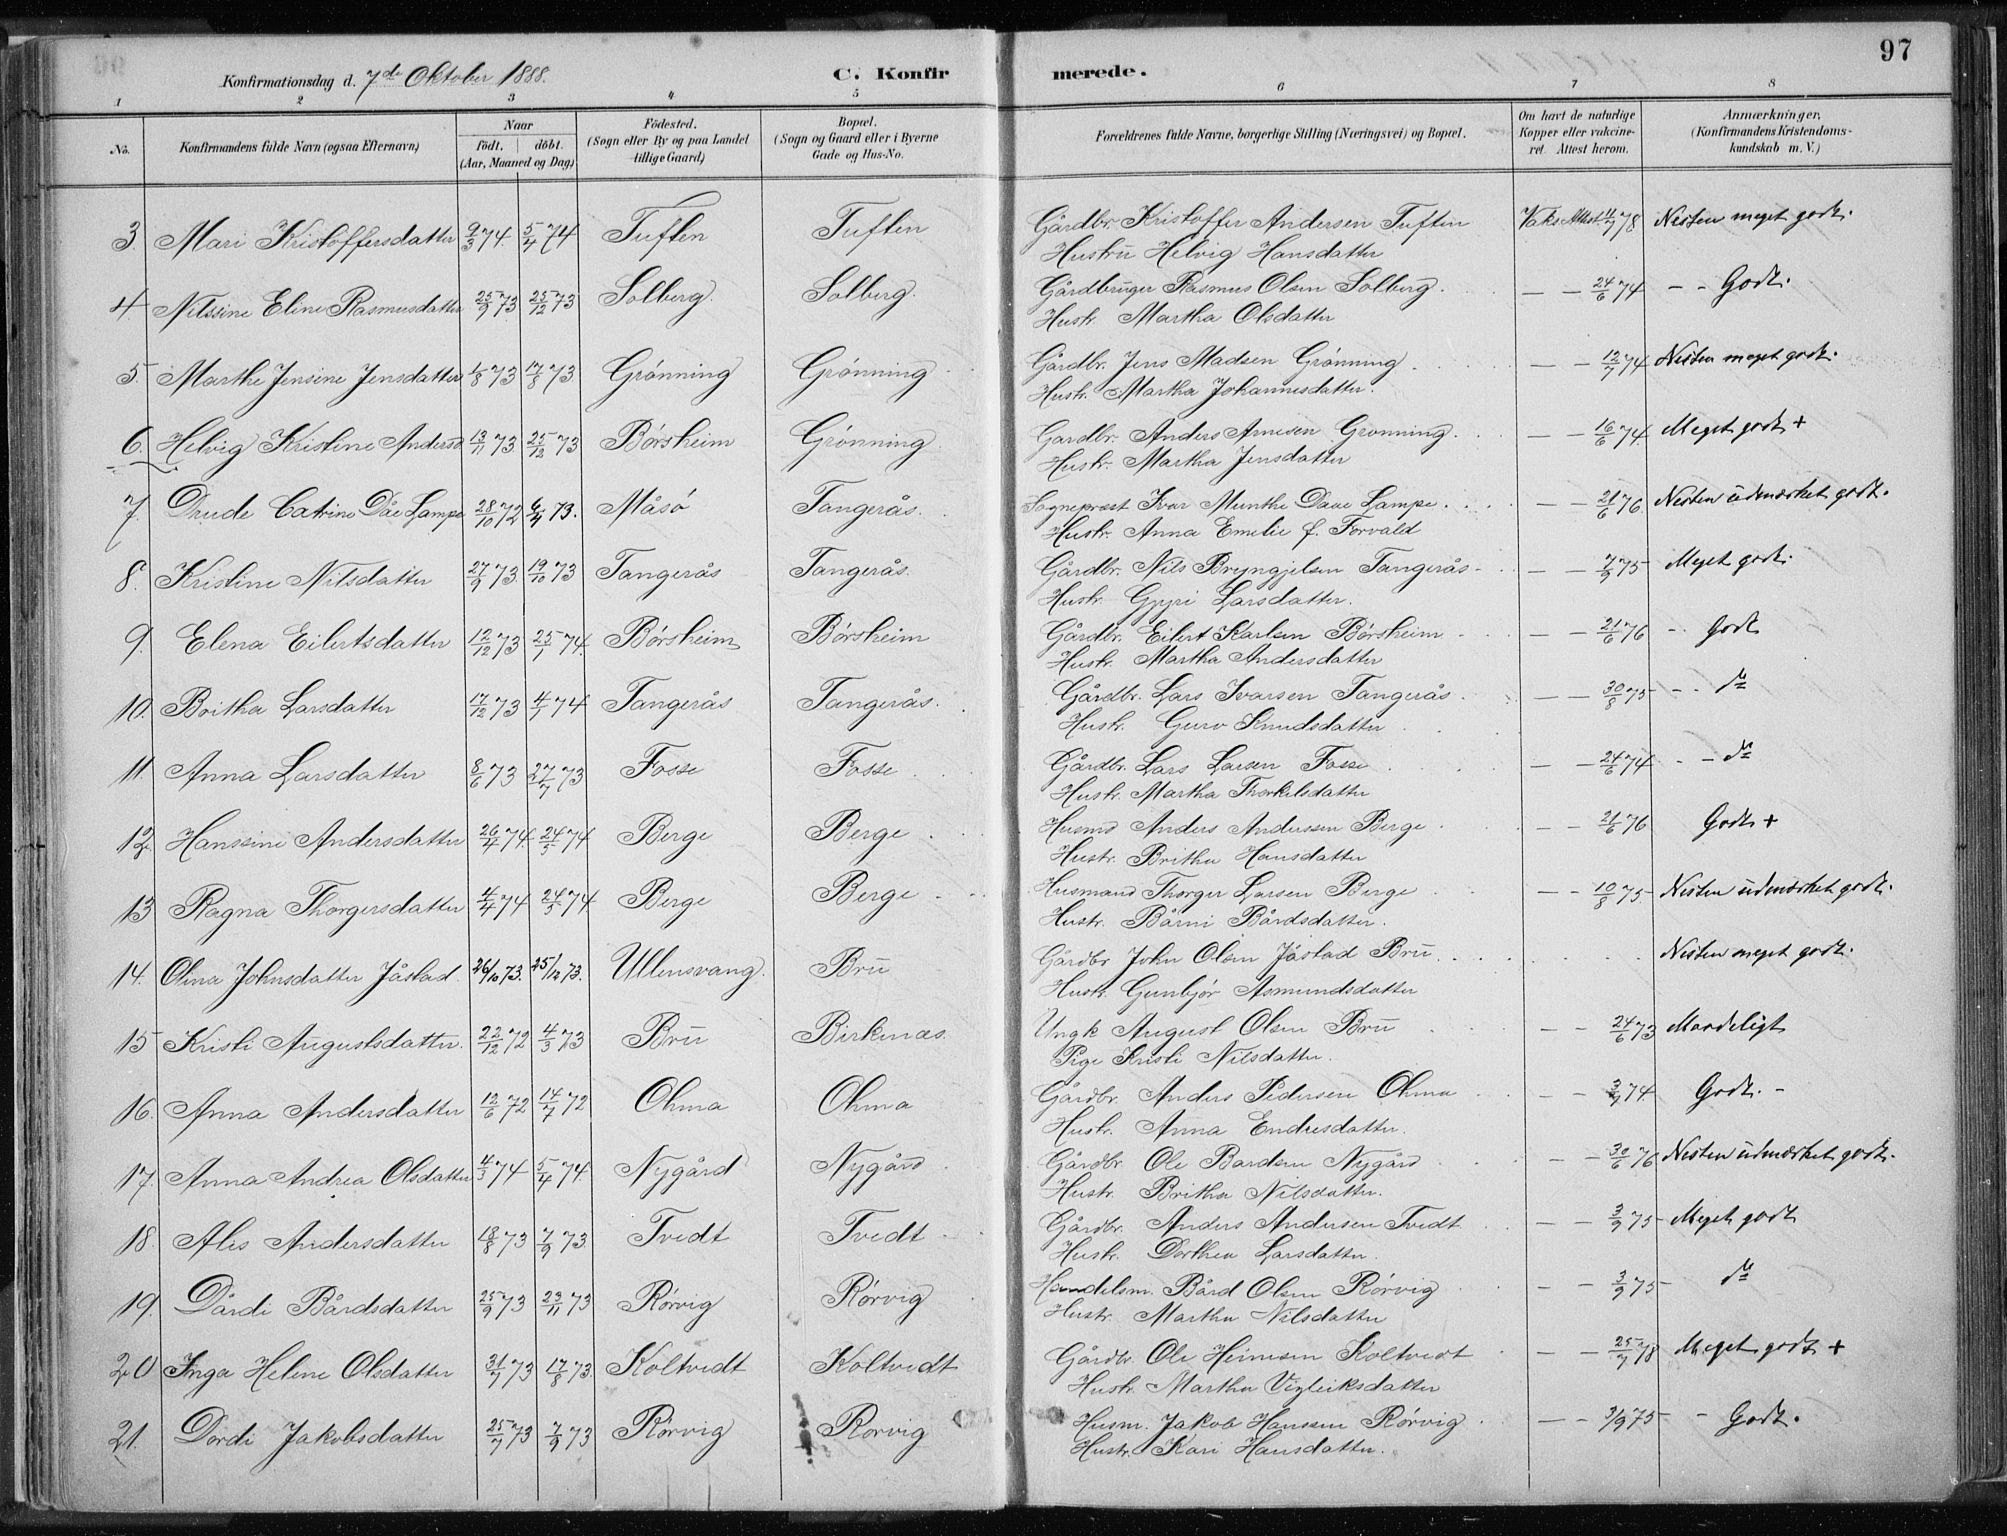 97
Konfirmationsdag d. 7de Oktober 1888.
C. Konfirmerede.
1 2 3 4 5 6 7 8
No. Konfirmandens fulde Navn (ogsaa Efternavn) Naar født. døbt. (Aar, Maaned og Dag) Födested. (Sogn eller By og paa Landet tillige Gaard) Bopæl. (Sogn og Gaard eller i Byerne Gade og Hus-No. Forældrenes fulde Navne, borgerlige Stilling (Næringsvei) og Bopæl. Om havt de naturlige Kopper eller vakcineret. Attest herom. Anmærkninger, (Konfirmandens Kristendomskundskab m. V.)
3. Mari Kristoffersdatter 9/3 74 5/4 74 Tuften Tuften Gårdbr. Kristoffer Andersen Tuften Vaks. Attest 11/7 78 Nesten meget godt.
Hustru Helvig Hansdatter
4 Nilsine Eline Rasmusdatter 25/9 73 25/12 73 Solberg. Solberg. Gårdbruger Rasmus Olsen Solberg. — — 24/6 74 - - Godt.
Hustr. Martha Olsdatter
5. Marthe Jensine Jensdatter 1/8 73 17/8 73. Grønning Grønning Gårdbr. Jens Madsen Grønning — — 12/7 74 Nesten meget godt.
Hustr. Martha Johannesdatter.
6. Helvig Kristine Andersd 13/11 73 25/12 73 Børsheim Grønning Gardbr. Anders Arnesen Grønning. — — 16/6 74 Meget godt +
Hustr. Martha Jensdatter
7. Drude Catrine Dåe Lampe 28/10 72 6/4 73. Måsø Tangerås. Sogneprest Ivar Munthe Daae Lampe. — — 21/6 76 Nesten üdmærket godt.
Hustr. Anna Emelie f. Forvald
8. Kristine Nilsdatter 27/9 73 19/10 73 Tangerås Tangerås. Gårdbr. Nils Bryngjelsen Tangerås - — — 7/9 75 Meget godt.
Hustr. Gyri Larsdatter.
9. Elena Eilertsdatter 12/12 73 25/1 74. Børsheim Børsheim Gårdbr. Eilert Karlsen Børsheim — — 21/6 76 - Godt
Hustr. Martha Andersdatter
10. Britha Larsdatter 17/12 73 4/1 74 Tangerås Tangerås. Gårdbr. Lars Ivarsen Tangerås. — — 30/8 75 - - do
Hustr. Guro Knudsdatter
11. Anna Larsdatter 8/6 73 27/7 73 Fosse Fosse Gårdbr. Lars Larsen Fosse — — 24/6 74 - - do
Hustr. Martha Thorkelsdatter
12. Hanssine Andersdatter 26/4 74 24/5 74 Berge Berge Husmd Anders Anderssen Berge — — 21/6 76 Godt +
Hustr. Britha Hansdatter
13 Ragna Thorgersdatter 4/4 74 24/5 74 Berge Berge Husmand Thorger Larsen Berge — — 10/8 75 Nesten üdmærket godt.
Hustr. Bårni Bårdsdatter.
14. Olina Johnsdatter Jåstad. 26/10 73. 25/12 73. Ullensvang. Brü Gårdbr John Olsen Jåstad Brü. Nesten meget godt.
Hustr. Gunbjør Asmundsdatter
15 Kristi Augustsdatter. 22/12 72 4/3 73 Brü Birkenæs. Ungk August Olsen Brü — — 24/6 73 Mardeligt
Pige Kristi Nilsdatter.
16. Anna Andersdatter 12/6 72 14/7 72 Ohma Ohma Gårdbr. Anders Pedersen Ohma — — 3/9 74 Godt. -
Hustr. Anna Endresdatter.
17. Anna Andrea Olsdatter 4/3 74 5/4 74. Nygård Nygård Gårdbr Ole Bardsen Nygård — — 30/6 76 Nesten üdmærket godt.
Hustr. Britha Nilsdatter.
18. Alis Andersdatter 18/8 73 7/9 73. Tvedt Tvedt Gårdbr. Anders Andersen Tvedt — — 3/9 75 - Meget godt
Hustr. Dorthea Larsdatter.
19. Dårdi Bårdsdatter 25/9 73 23/11 73 Rørvig Rørvig Handelsm. Bård Olsen Rørvig — — 3/9 75 - do
Hustr. Martha Nilsdatter
20 Inga Helene Olsdatter 31/7 73 17/8 73. Koltvedt Koltvedt Gårdbr. Ole Heinesen Koltvedt — — 25/7 78 Meget godt +
Hustr. Martha Vigleiksdatter
21. Dordi Jakobsdatter 25/7 73 7/9 73 Rørvig Rørvig Husm. Jakob Hanssen Rørvig — — 3/9 75 - - Godt.
Hustr. Kari Hansdatter.